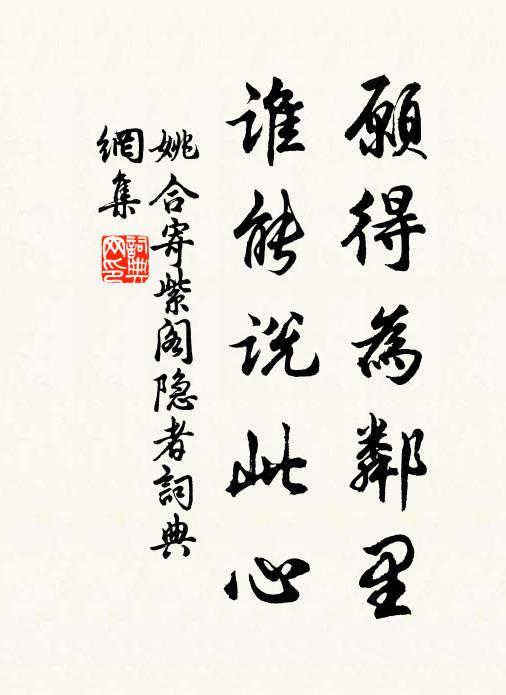 願得為鄰里
誰能説此心
姚合寄紫阁隐者詞典
網集
詞典网印